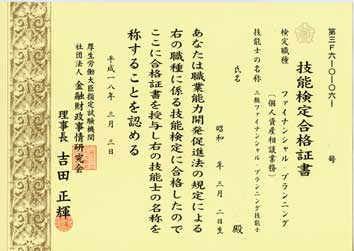 第三F六-一〇-〇六-一 号
技能検定合格証書
検定職種 ファイナンシャル・プランニング
(個人資産相談業務)
技能士の名称 三級ファイナンシャル・プランニング技能士
氏名 殿
昭和 年 三月 二日生
あなたは職業能力開発促進法の規定による
右の職種に係る技能検定に合格したので
ここに合格証書を授与し右の技能士の名称を
称することを認める
平成一八年 三月 三日
厚生労働大臣指定試験機関
社団法人 金融財政事情研究会
理事長 吉田正輝